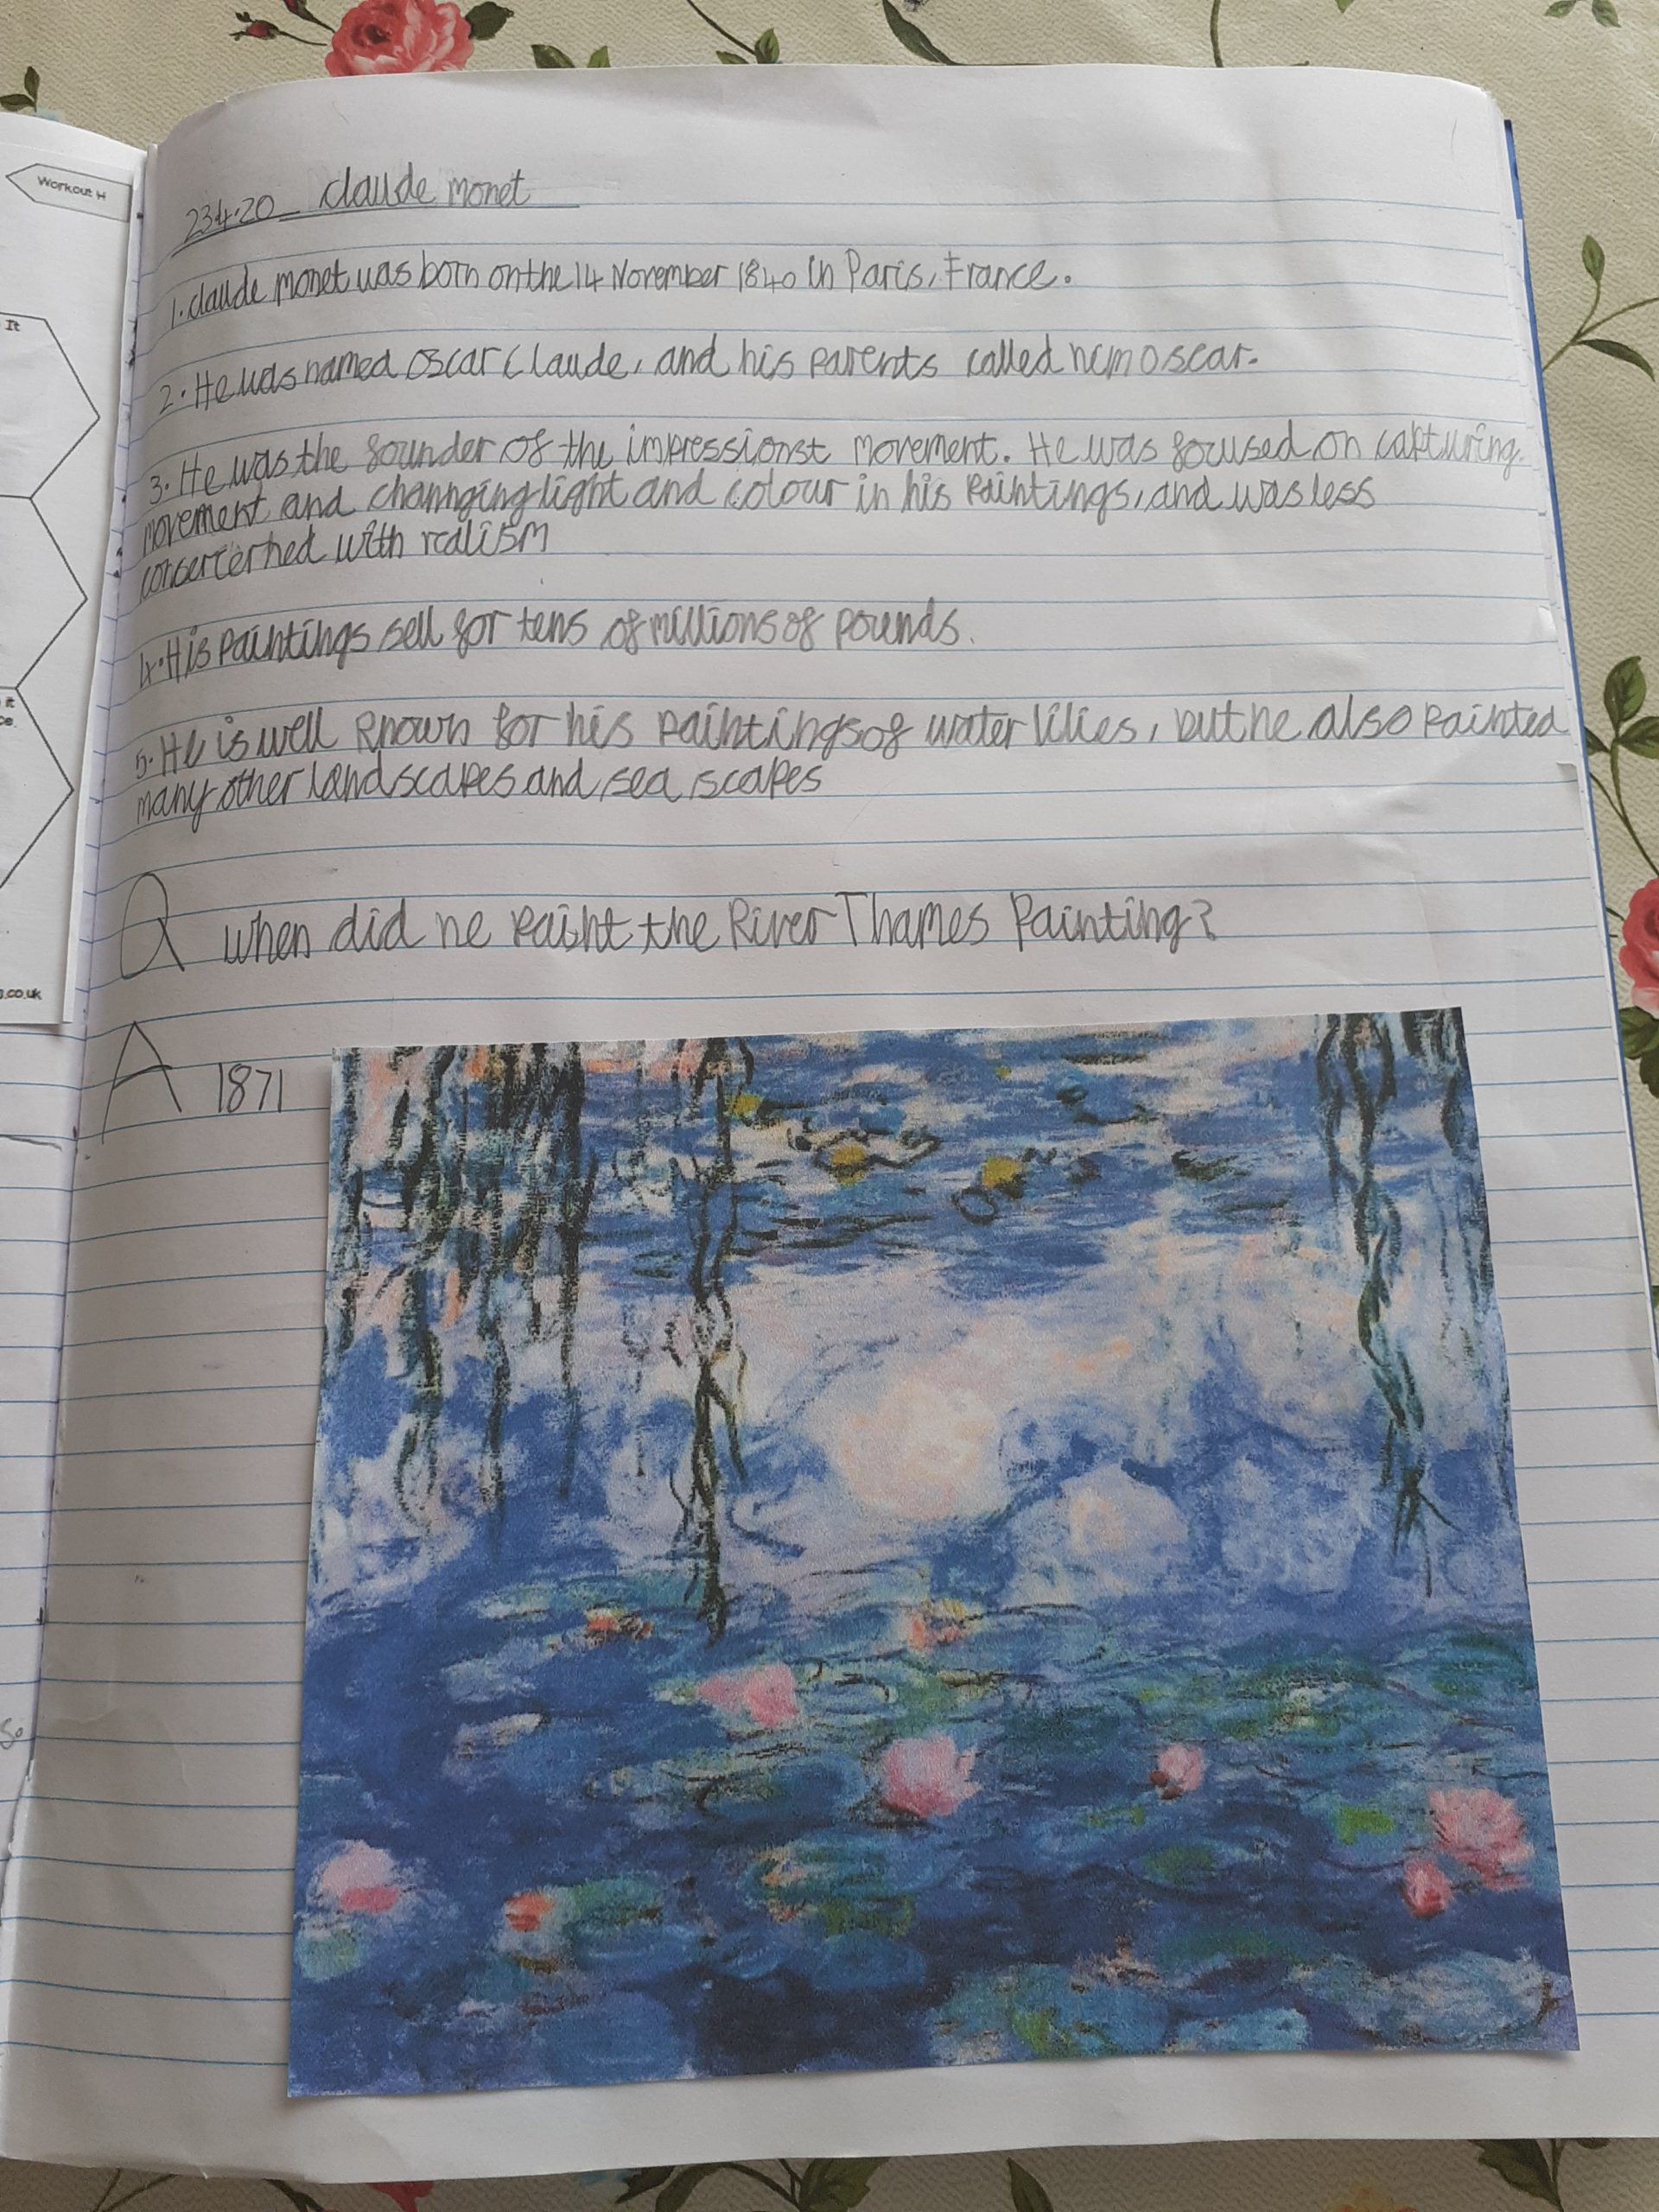 Workout H
It
it
ce.
g.co.uk
So
23.4.20 Claude Monet
1. Claude Monet was born on the 14 November 1840 in Paris, France.
2. He was named Oscar Claude, and his parents called him Oscar.
3. He was the founder of the impressionst movement. He was focused on capturing
movement and channging light and colour in his paintings, and was less
concercerned with realism
4. His paintings sell for tens of millions of pounds.
5. He is well known for his paintings of water lilies, but he also painted
many other landscapes and sea scapes
Q When did he paint the River Thames Painting?
A 1871